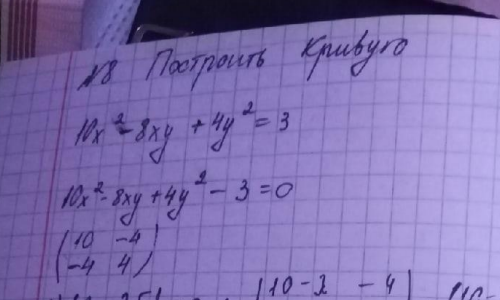 №8 Построить Кривую
10x² - 8xy + 4y² = 3
10x² - 8xy + 4y² - 3 = 0
(10 -4)
(-4 4)
(10-λ -4)